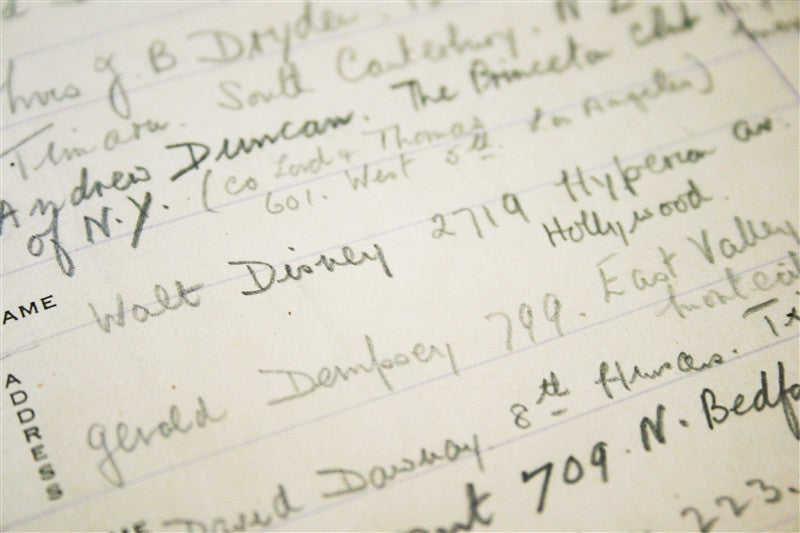 J. B Dryden.
Timaru. South Canterbury. N Z
Andrew Duncan. The Princeton Club
of N.Y. (Co Lord & Thomas
601. West 5th. Los Angeles)
Walt Disney 2719 Hyperion av.
Hollywood.
AME
Gerald Dempsey 799. East Valley
ADDRESS
David Dawnay. 8th Hussars.
709. N. Bedfo
223.